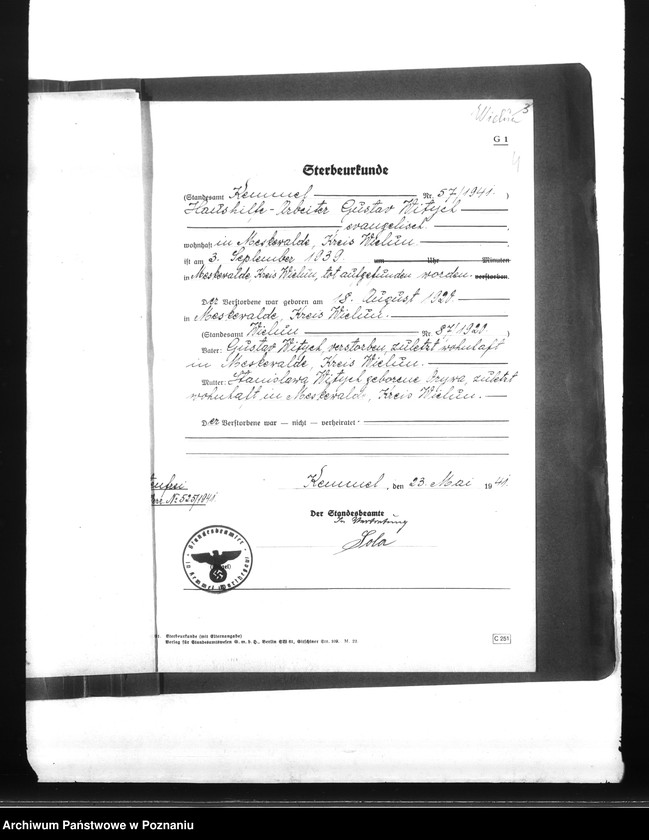 Wieluń 3
G 1
4
Sterbeurkunde
(Standesamt Kemmel Nr. 57/1941.)
Haushilfe-Arbeiter Gustav Wityck
evangelisch
wohnhaft in Meskevalde, Kreis Wielun
ist am 3. September 1939 um Uhr Minuten
in Meskevalde, Kreis Wielun, tot aufgefunden worden. verstorben.
Der Verstorbene war geboren am 18. August 1920
in Meskevalde, Kreis Wielun.
(Standesamt Wielun Nr. 87/1920)
Vater: Gustav Wityck, verstorben, zuletzt wohnhaft
in Meskevalde, Kreis Wielun.
Mutter: Stanislawa Wityck geborene zuletzt
wohnhaft in Meskevalde, Kreis Wielun.
Der Verstorbene war — nicht — verheiratet
Kemmel, den 23. Mai 1941.
Nr. 525/1941
Der Standesbeamte
In Vertretung
Standesbeamter
in Kemmel (Warthegau)
Sterbeurkunde (mit Elternangabe)
Verlag für Standesamtswesen G. m. b. H., Berlin SW 61, Gitschiner Str. 109.
C 251
Archiwum Państwowe w Poznaniu